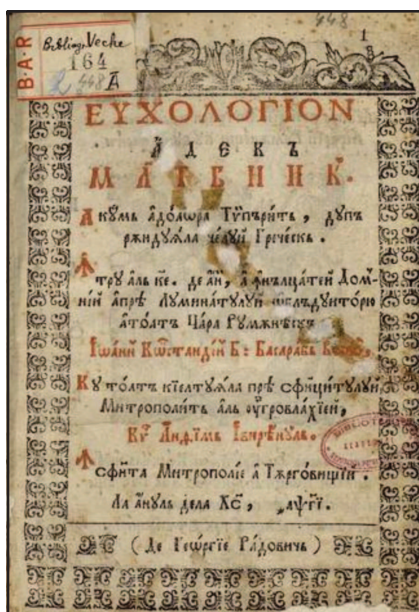 448
1
B·A·R
Bibliog. Veche
164
448
A
ЕУХОЛОГІОН
АДЕКЪ
МЛТВНИК.
Акумь адоаѡра Тѷпърить, дупъ
рѫндуꙗла челуй Гречєскъ.
Ꙟтру аль кє. де ани, а ꙟнълцатей Дом
нїй апрѣ Луминатулуй ѡблъдуиторю
атоатъ Цара Румѫнѣскъ
Іѡанн Кѡстандїн Б: Басарабъ
Ку тоатъ кїелтуꙗла прѣ сфинцитулуй
Митрополить аль оуггровлахїей,
Кѵ Анѳімь Івирѣнуль.
Ꙟ сфнта Митрополїе а Тѫрговищїи.
Ла ануль дела Хс, ҂аѱгі.
(Де Геѡргїе Радовичь)